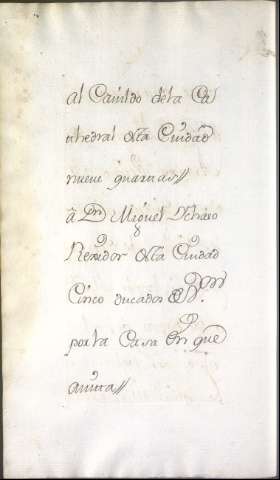 al Cavildo dela Ca
thedral desta Ciudad
nueve guarnas//
â Dn Miguel Ochavo
Residor desta Ciudad
Cinco ducados de Vn.
por la Casa En que
avita//